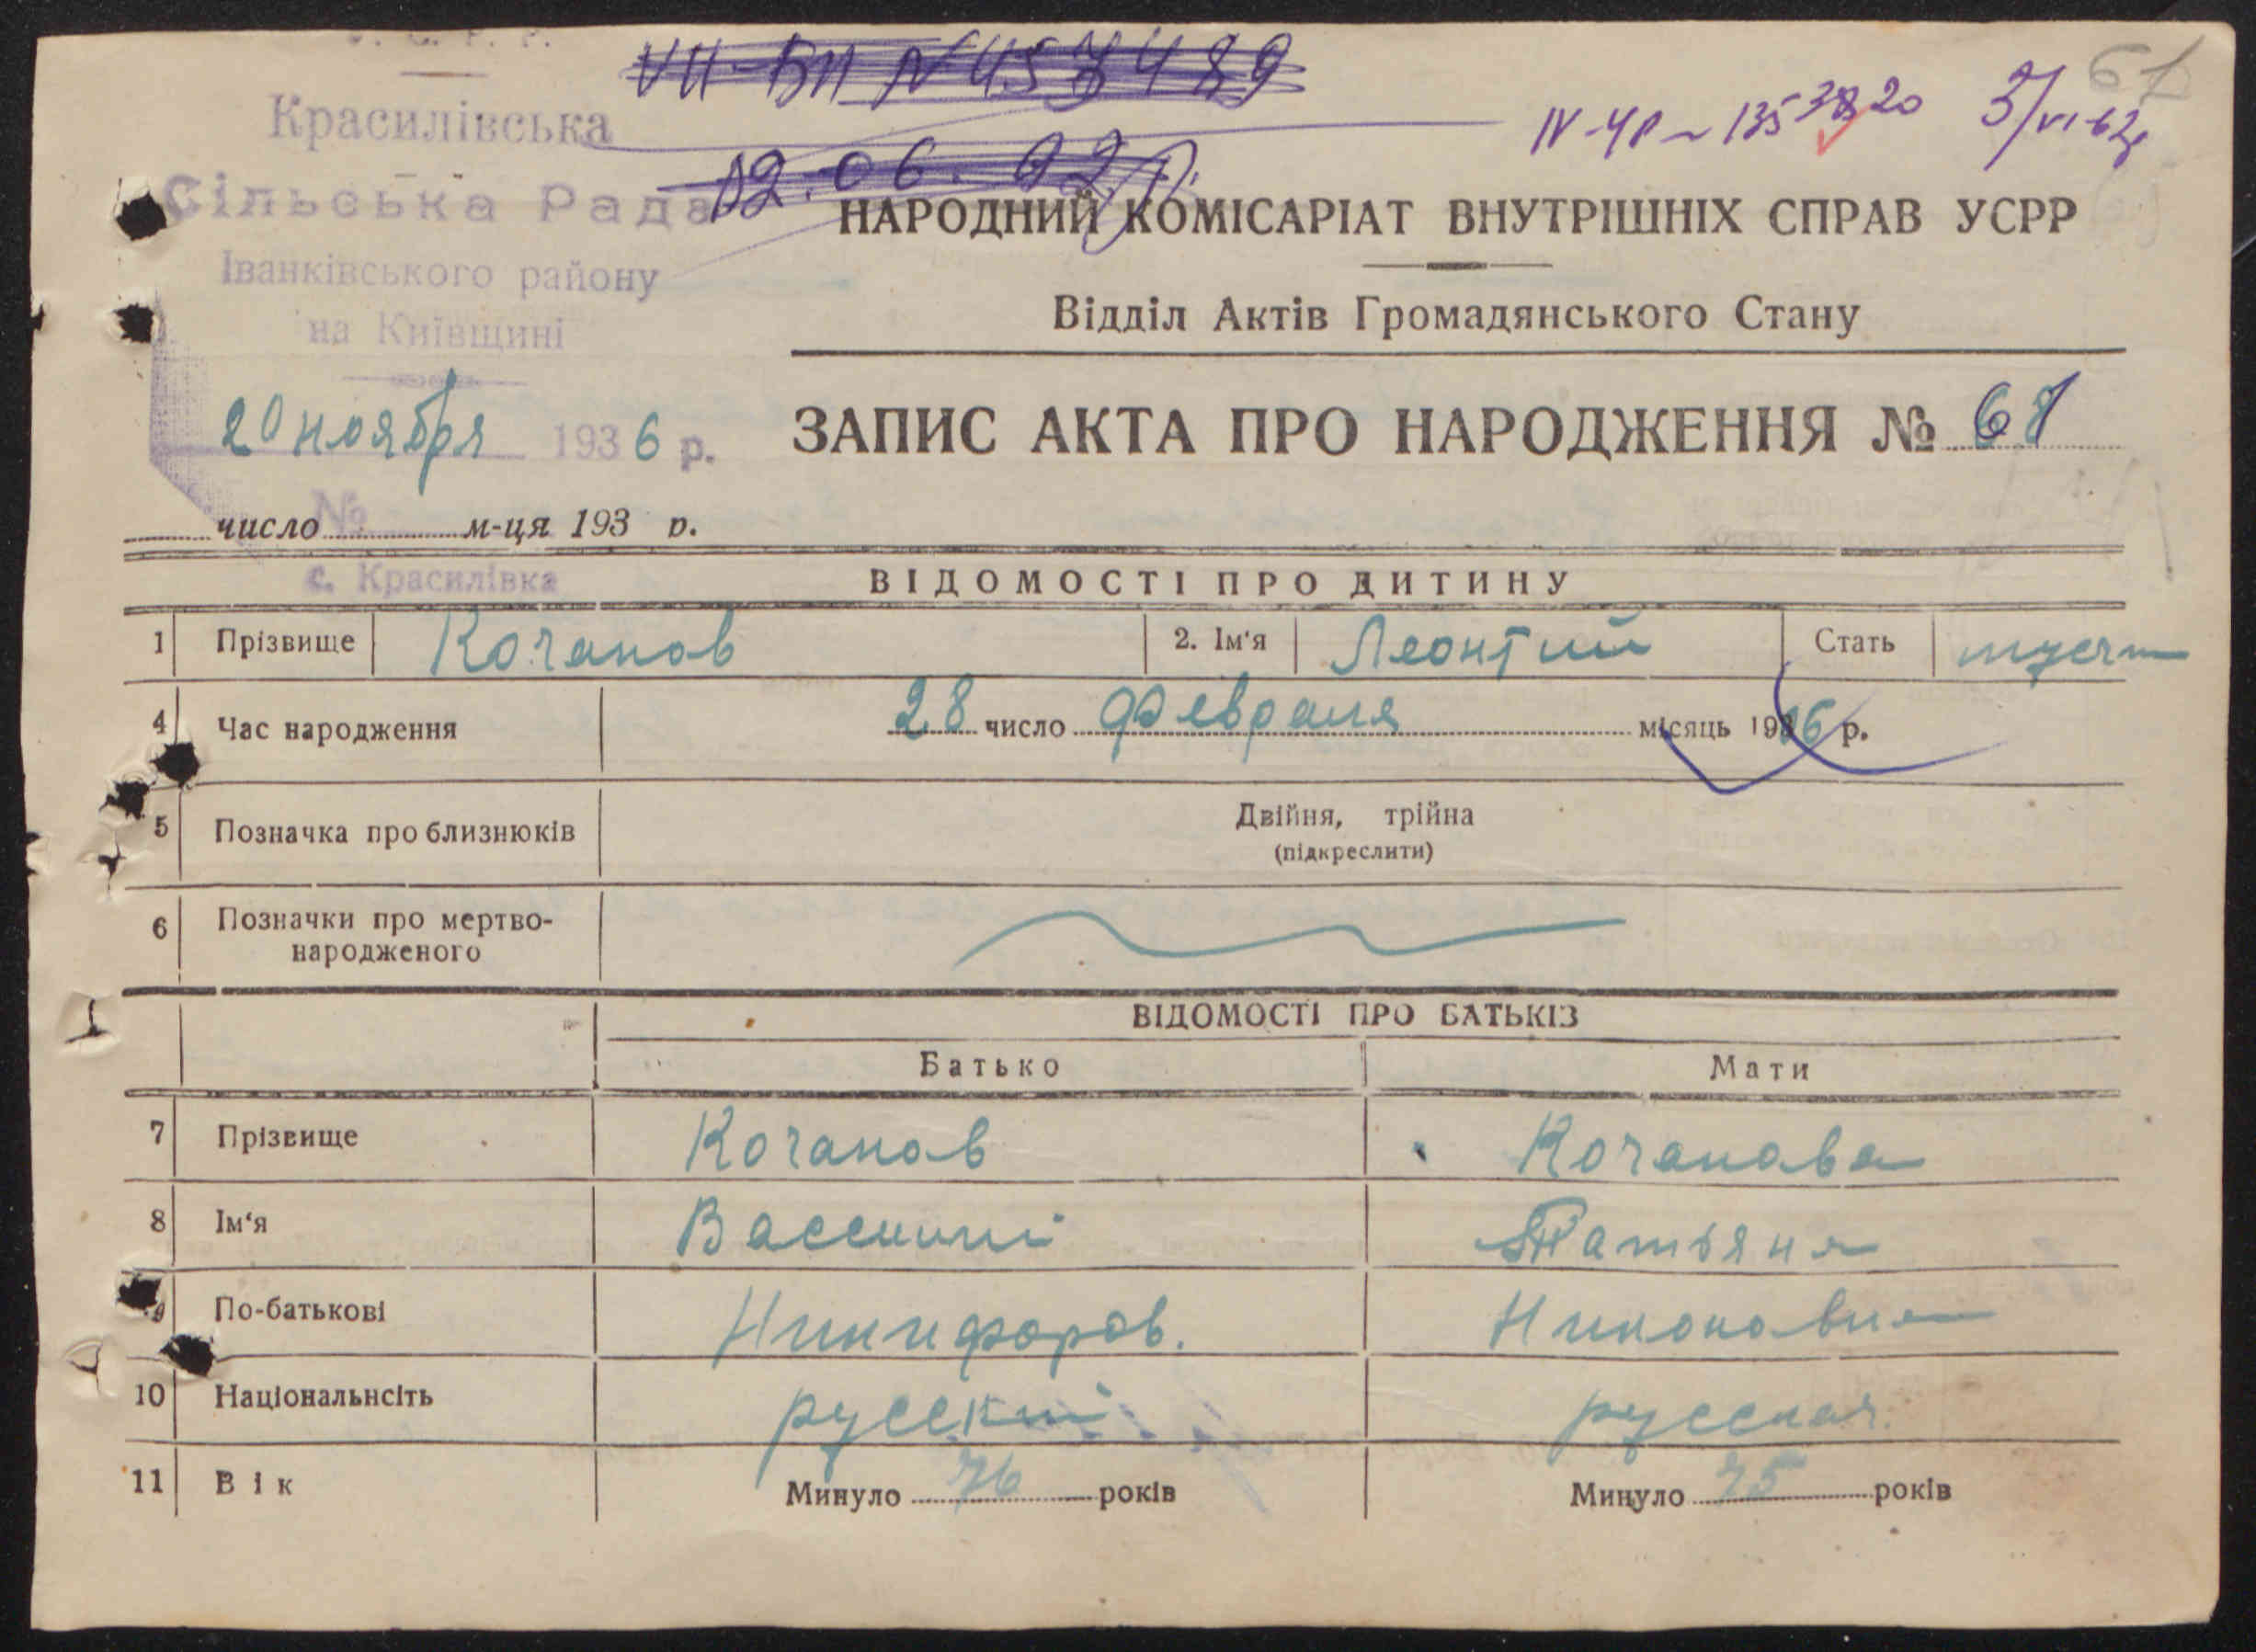 VII-БП №457489
67
IV-ЧР № 135
3/VI-62
Красилівська
02.06.92р.
Сільська Рада
НАРОДНИЙ КОМІСАРІАТ ВНУТРІШНІХ СПРАВ УСРР
Іванківського району
на Київщині
Відділ Актів Громадянського Стану
20 ноября 1936 р.
ЗАПИС АКТА ПРО НАРОДЖЕННЯ № 67
№
число м-ця 193 р.
с. Красилівка
ВІДОМОСТІ ПРО ДИТИНУ
1 Прізвище Кочанов 2. Ім'я Леонтий Стать
4 Час народження 28 число Февраля місяць 1916 р.
5 Позначка про близнюків Двійня, трійна
(підкреслити)
6 Позначки про мертво-
народженого
ВІДОМОСТІ ПРО БАТЬКІВ
Батько Мати
7 Прізвище Кочанов Кочанова
8 Ім'я Василий Татьяна
9 По-батькові Никифоров. Никоновна
10 Національнсіть русский русская
11 Вік Минуло 76 років Минуло 75 років